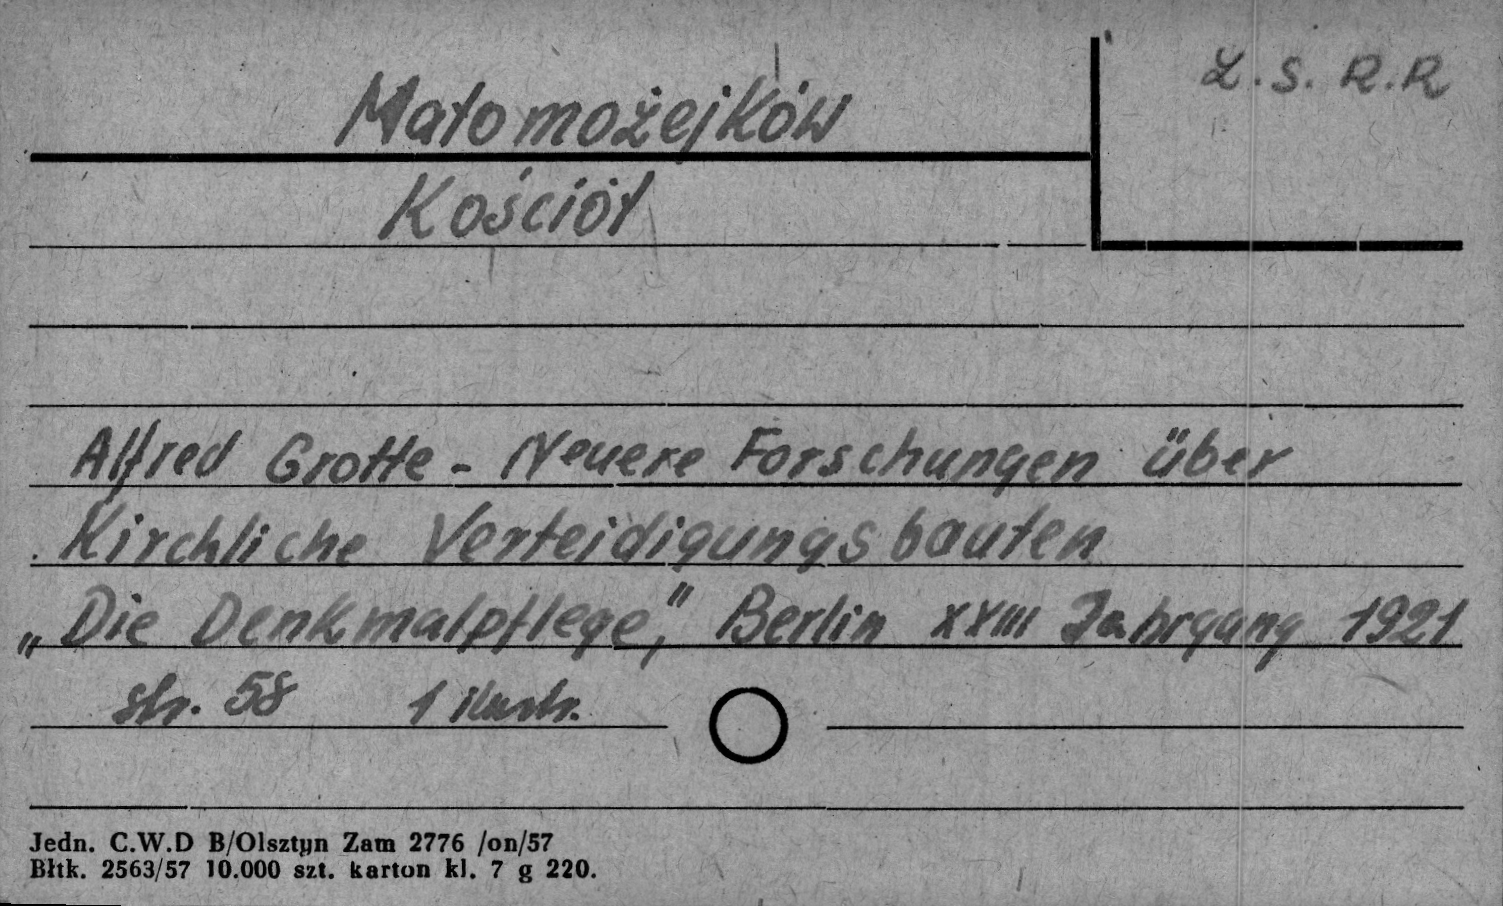 Małomożejków
Z.S.R.R
Kościół
Alfred Grotte - Neuere Forschungen über
Kirchliche Verteidigungsbauten
„Die Denkmalpflege," Berlin XXIII Jahrgang 1921
str. 58 1 ilustr.
Jedn. C.W.D B/Olsztyn Zam 2776 /on/57
Błtk. 2563/57 10.000 szt. karton kl. 7 g 220.